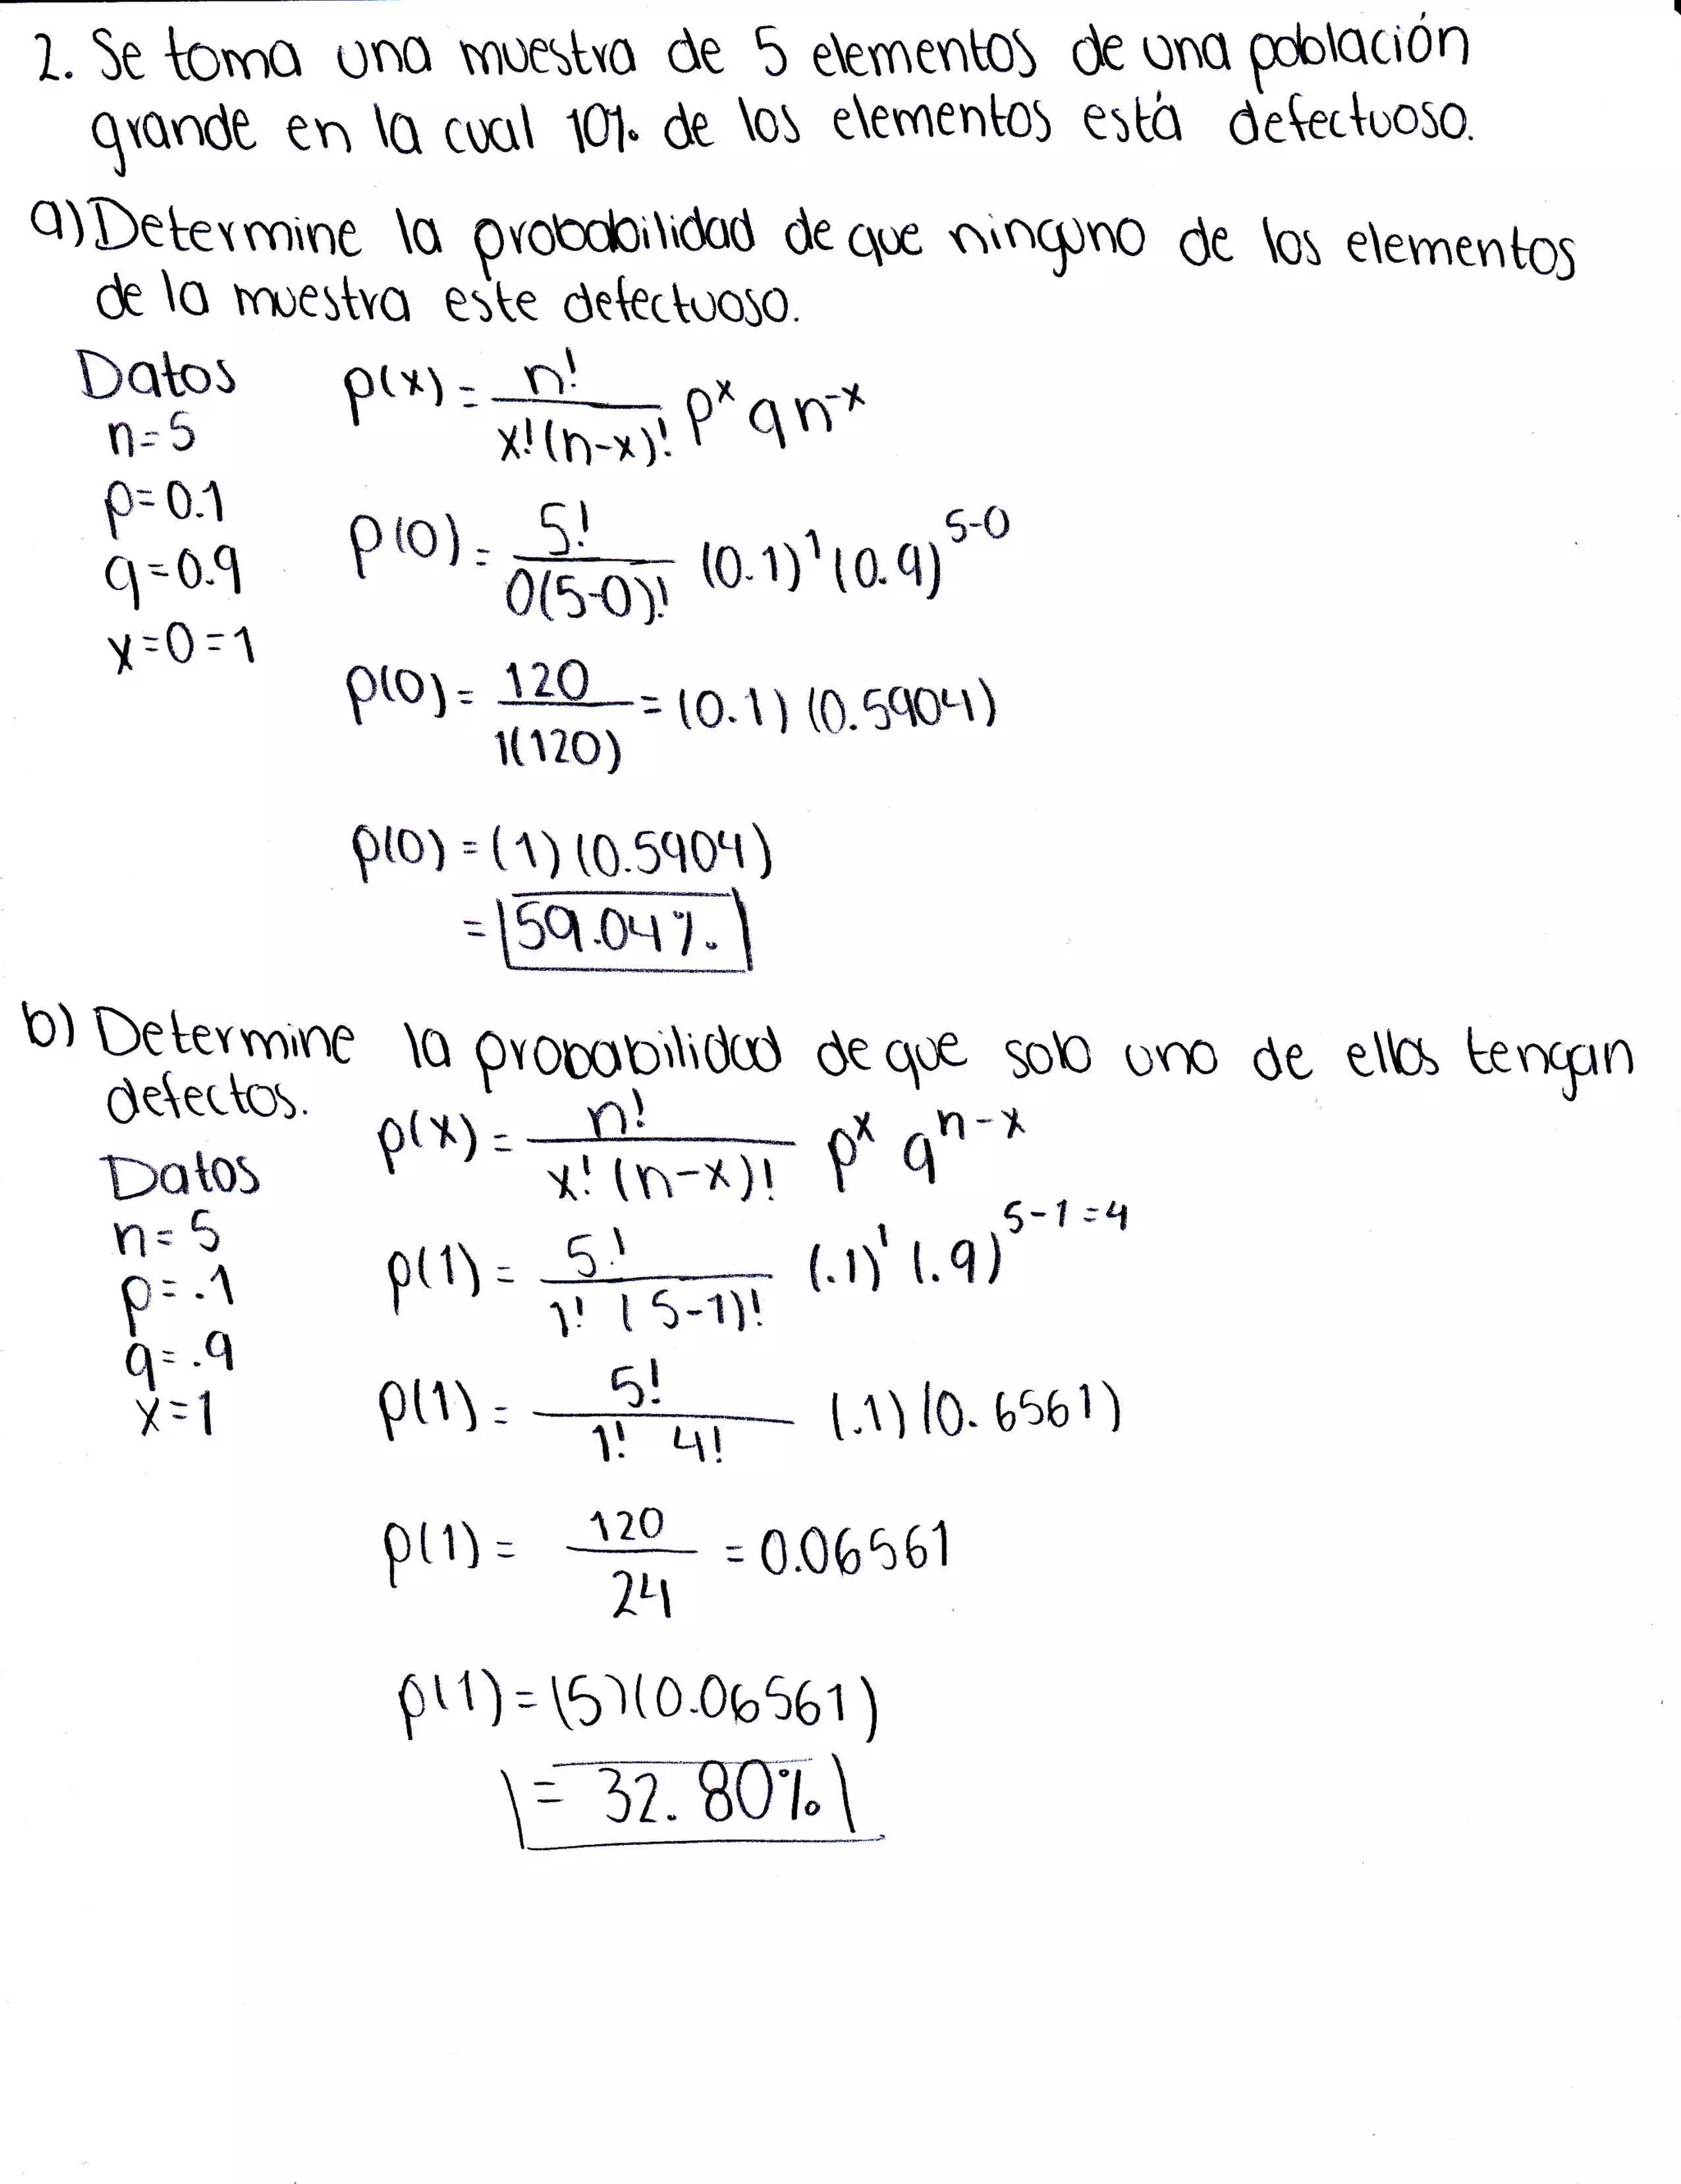 2. Se toma una muestra de 5 elementos de una población
grande en la cual 10% de los elementos está defectuoso.
a) Determine la probabilidad de que ninguno de los elementos
de la muestra este defectuoso.
Datos
n=5
p=0.1
q=0.9
x=0=1
p(x) = n! / x!(n-x)! p^x q n^-x
p(0) = 5! / 0(5-0)! (0.1)^1 (0.9)^5-0
p(0) = 120 / 1(120) = (0.1) (0.5904)
p(0) = (1) (0.5904)
= 59.04%
b) Determine la probabilidad de que solo uno de ellos tengan
defectos.
Datos
n=5
p=.1
q=.9
x=1
p(x) = n! / x! (n-x)! p^x q^n-x
p(1) = 5! / 1! (5-1)! (.1)^1 (.9)^5-1=4
p(1) = 5! / 1! 4! (.1) (0.6561)
p(1) = 120 / 24 = 0.06561
p(1) = (5) (0.06561)
= 32.80%